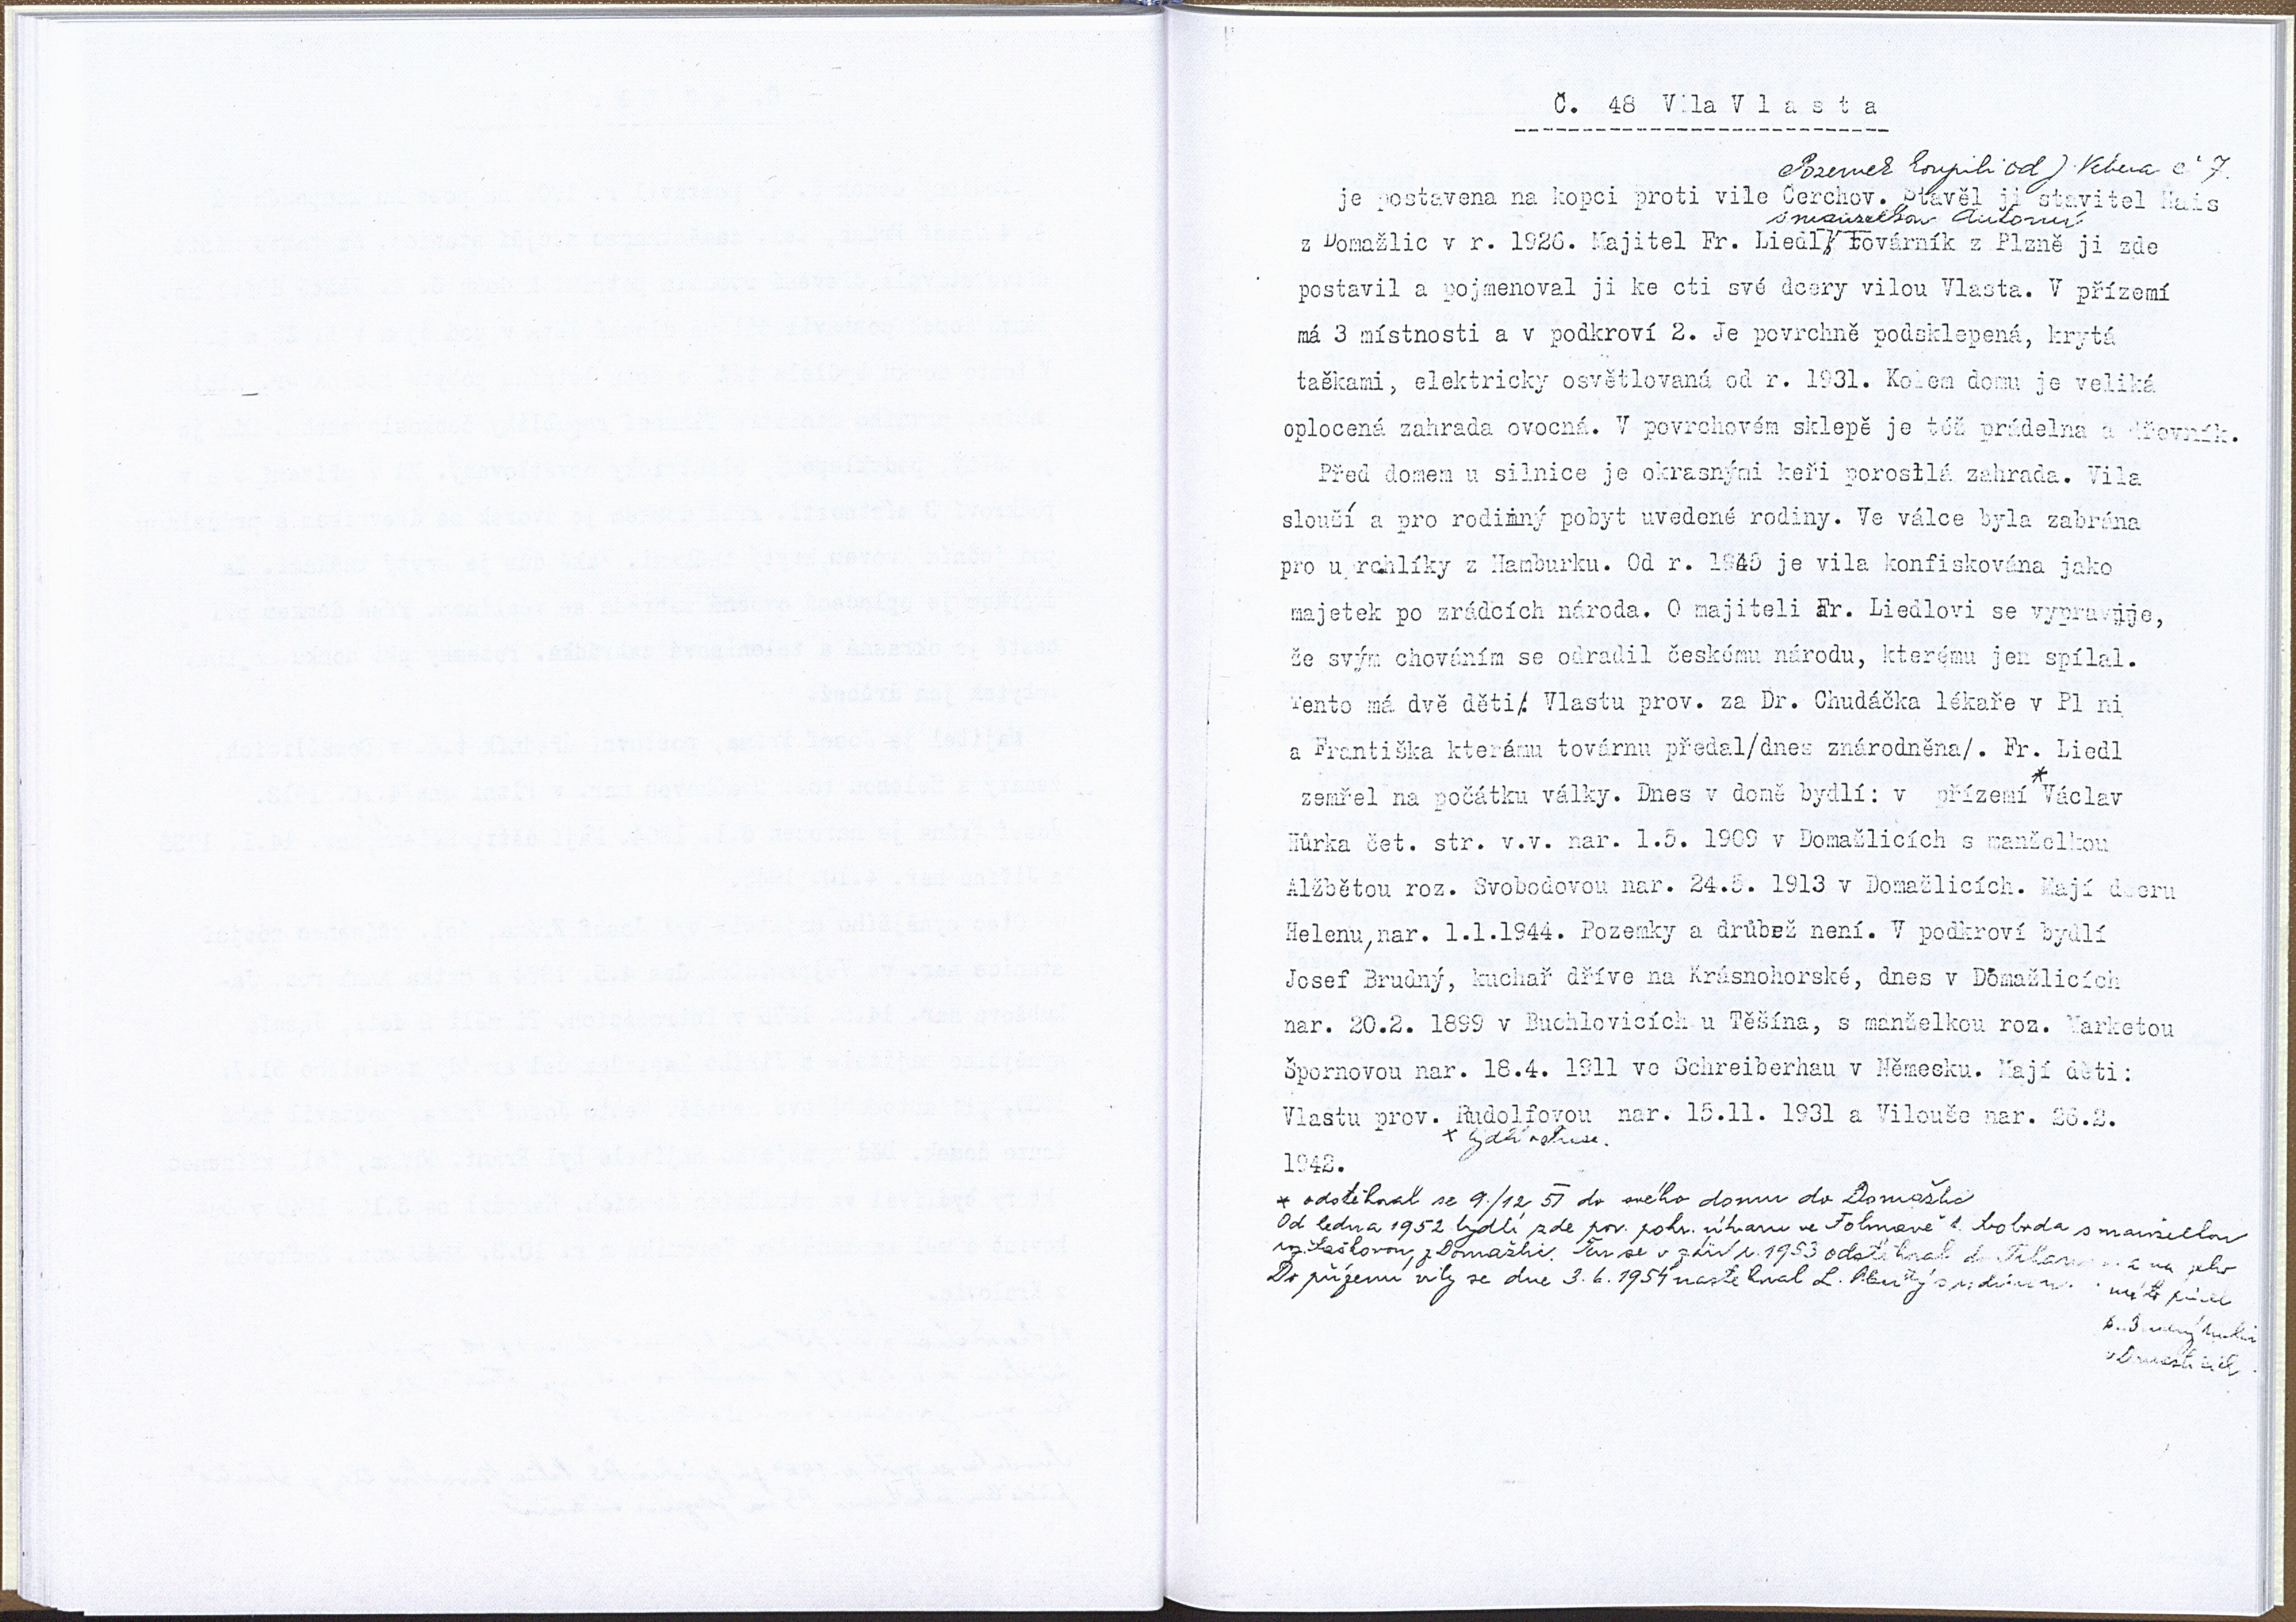 Č. 48 Vila V l a s t a
Pozemek koupili od J. Vebera č 7.
je postavena na kopci proti vile Čerchov. Stavěl ji stavitel Hais
s manželkou Antonií
z Domažlic v r. 1926. Majitel Fr. Liedl, továrník z Plzně ji zde
postavil a pojmenoval ji ke cti své dcery vilou Vlasta. V přízemí
má 3 místnosti a v podkroví 2. Je povrchně podsklepená, krytá
taškami, elektricky osvětlovaná od r. 1931. Kolem domu je veliká
oplocená zahrada ovocná. V povrchovém sklepě je též prádelna a dřevník.
Před domem u silnice je okrasnými keři porostlá zahrada. Vila
slouží a pro rodinný pobyt uvedené rodiny. Ve válce byla zabrána
pro uprchlíky z Hamburku. Od r. 1945 je vila konfiskována jako
majetek po zrádcích národa. O majiteli Fr. Liedlovi se vypravuje,
že svým chováním se odradil českému národu, kterému jen spílal.
Tento má dvě děti/: Vlastu prov. za Dr. Chudáčka lékaře v Pl ni
a Františka kterámu továrnu předal/dnes znárodněna/. Fr. Liedl
zemřel na počátku války. Dnes v domě bydlí: v přízemí * Václav
Hůrka čet. str. v.v. nar. 1.5. 1909 v Domažlicích s manželkou
Alžbětou roz. Svobodovou nar. 24.5. 1913 v Domažlicích. Mají dceru
Helenu, nar. 1.1.1944. Pozemky a drůbež není. V podkroví bydlí
Josef Brudný, kuchař dříve na Krásnohorské, dnes v Domažlicích
nar. 20.2. 1899 v Buchlovicích u Těšína, s manželkou roz. Marketou
Špornovou nar. 18.4. 1911 ve Schreiberhau v Německu. Mají děti:
Vlastu prov. Rudolfovou nar. 15.11. 1931 a Vilouše nar. 26.2.
x bydlí
1942.
* odstěhoval se 9./12 51 do svého domu do Domažlic
Od ledna 1952 bydlí zde por. pohr. útvaru ve Folmavě s manželkou
roz. Laškovou, z Domažlic. Ten se v září r. 1953 odstěhoval do a na jeho
Do přízemí vily se dne 3.6.1954 nastěhoval L. s rodinou. místo přišel
v Domažlicích.